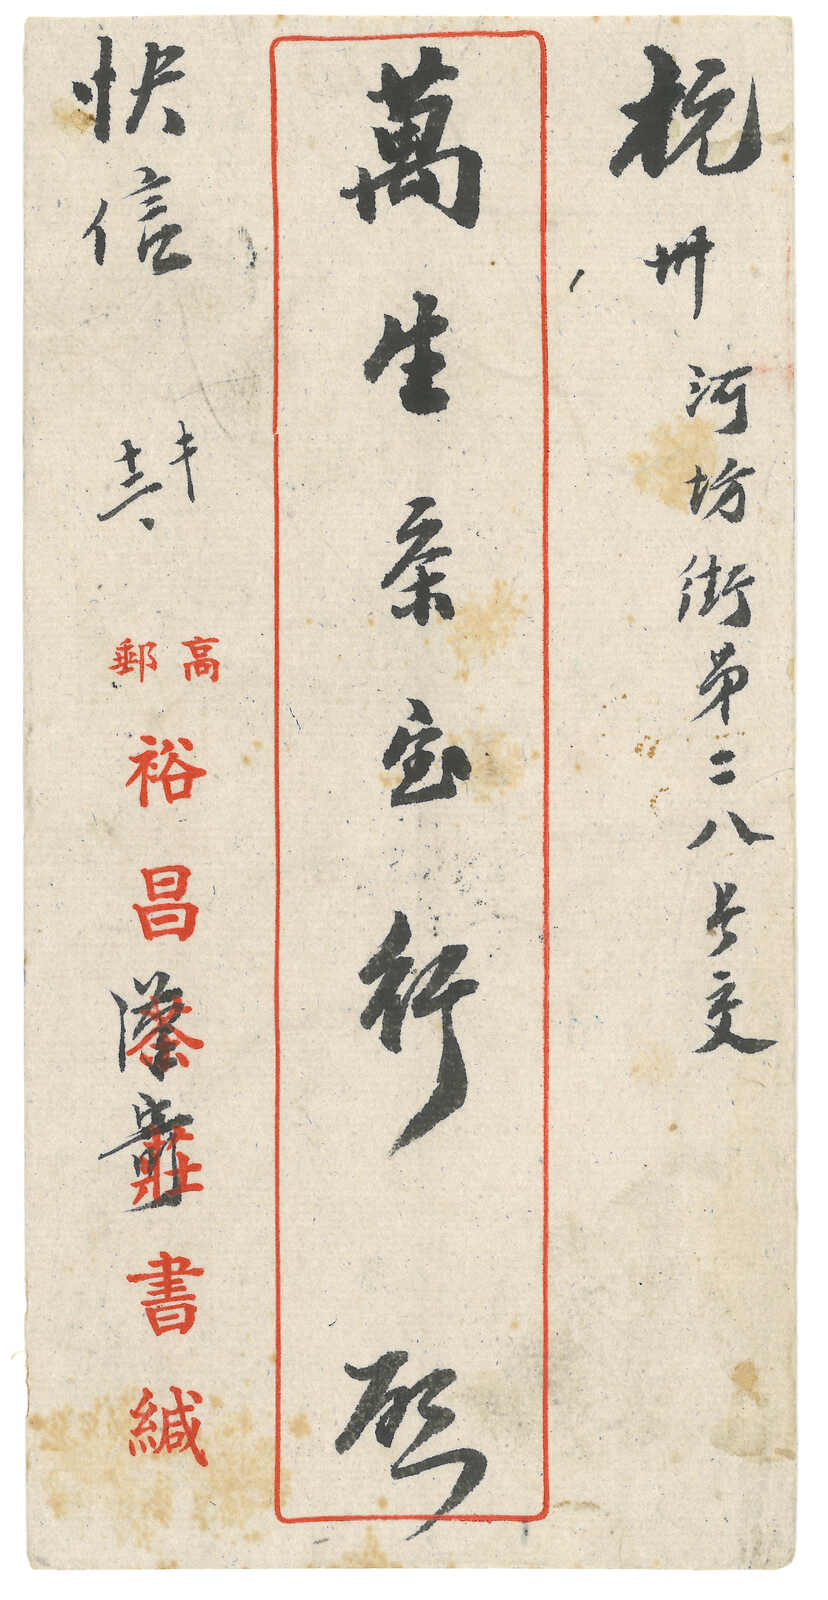 杭州河坊街第二八号交
萬生泰宝行 啟
快信
高郵
裕昌泰莊書緘